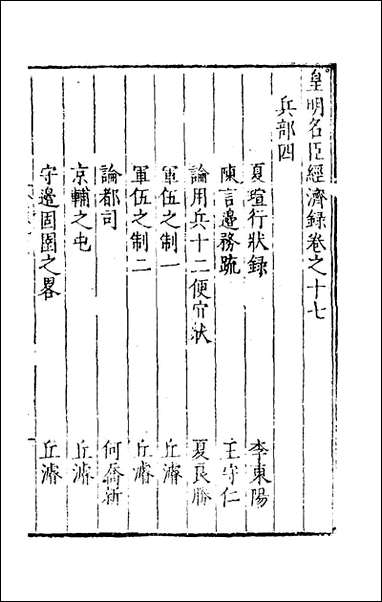 皇明名臣經濟録卷之十七
兵部四
夏瑄行狀録 李東陽
陳言邊務疏 王守仁
論用兵十二便宜狀 夏良勝
軍伍之制一 丘濬
軍伍之制二 丘濬
論都司 何喬新
京輔之屯 丘濬
守邊固圉之畧 丘濬